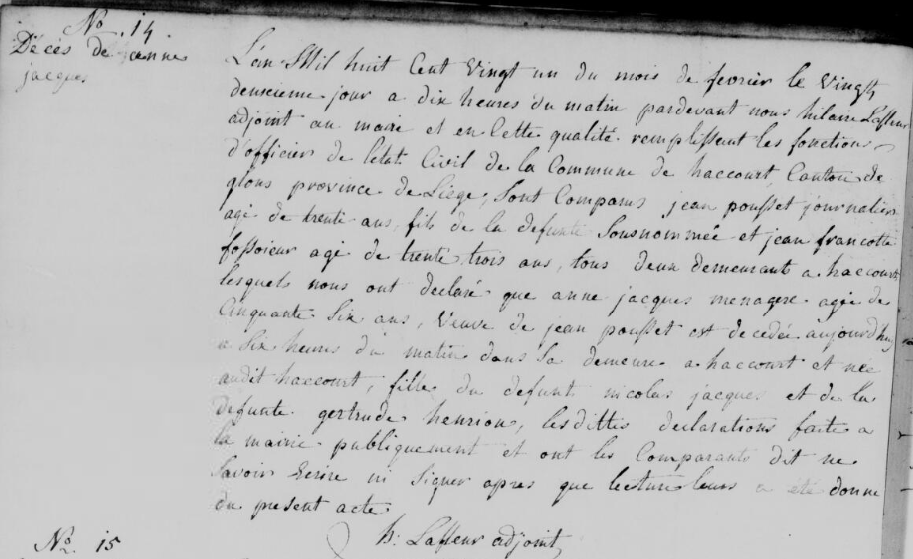 No. 14
Décès de jeanne
jacques
L'an Mil huit Cent Vingt un du mois de fevrier le Vingt
deuxieme jour a dix heures du matin pardevant nous hilaire Lafleur
adjoint au maire et en Cette qualité remplissant les fonctions
d'officier de l'etat Civil de la Commune de haccourt, Canton de
glons province de Liège, Sont Comparus jean pousset journalier
agé de trente ans, fils de la defunte Sousnommée et jean francotte
fossoieur agé de trente trois ans, tous deux demeurant a haccourt
lesquels nous ont declaré que anne jacques menagere agée de
Cinquante Six ans, Veuve de jean pousset est decedée aujourd'huy
a Six heures du matin dans Sa demeure a haccourt et née
audit haccourt, fille du defunt nicolas jacques et de la
defunte gertrude henrion, lesdittes declarations faite a
la mairie publiquement et ont les Comparants dit ne
Savoir Ecrire ni Signer apres que lecture leurs a été donné
du present acte
h: Lafleur adjoint
No. 15